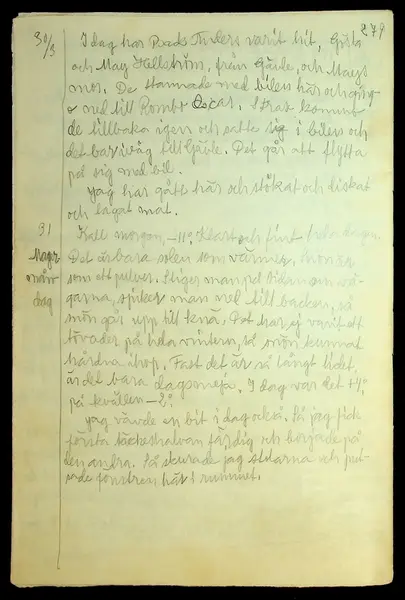 279
30/3 I dag har varit hit, Gösta
och May Hellström, från Gävle, och Mays
mor. De stannade med bilen här och ging
ned till Oscar. Strax kommo
de tillbaka igen och satte sig i bilen och
det bar iväg till Gävle. Det går att flytta
på sig med bil.
Jag har gått här och stökat och diskat
och lagat mat.
31 Kall morgon, -11°. Klart och fint hela dagen.
Det är bara solen som värmer. Snön är
mån som ett pulver. Stiger man på sidan om vä-
dag garna, man ned till backen, så
snön går upp till knä. Det har ej varit ett
töväder på hela vintern, så snön kunnat
hårdna ihop. Fast det är så långt lidet,
är det bara dagsmeja. I dag var det +4°,
på kvällen -2°.
Jag vävde en bit i dag också. Så jag fick
första täckeshalvan färdig och började på
den andra. Så skurade jag och put-
sade fönstren här i rummet.